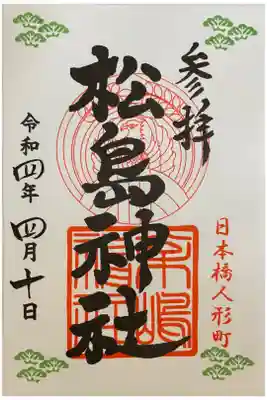 参拝
日本橋人形町
松島神社
令和四年
四月十日